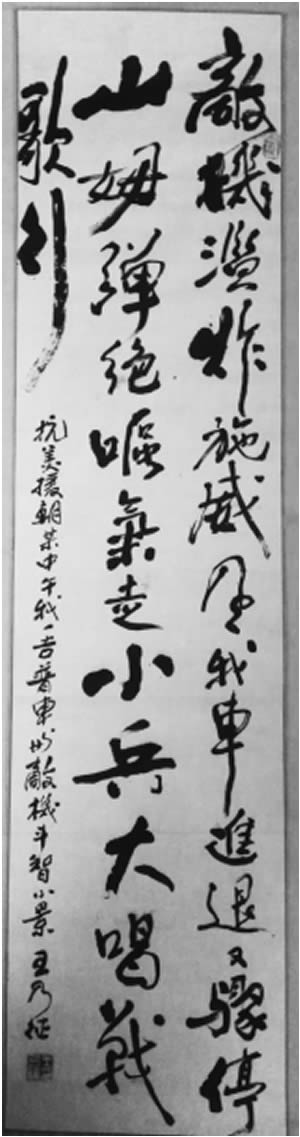 敵機濫炸施威風我車進退又驟停
山姆彈絕嘔氣走小兵大喝戰
歌行
抗美援朝某中午我一吉普車与敵機斗智小景 王乃征